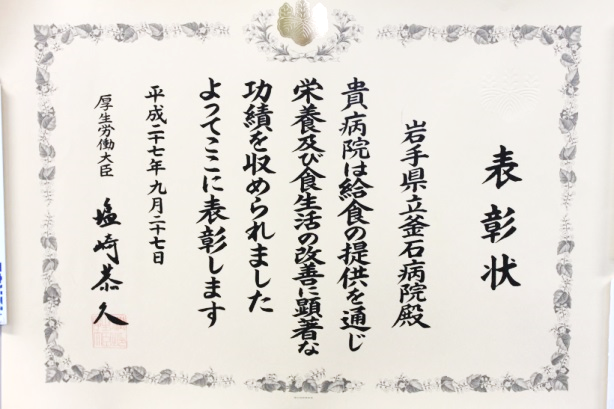 表彰状
岩手県立釜石病院殿
貴病院は給食の提供を通じ
栄養及び食生活の改善に顕著な
功績を収められました
よってここに表彰します
平成二十七年九月二十七日
厚生労働大臣
塩崎恭久